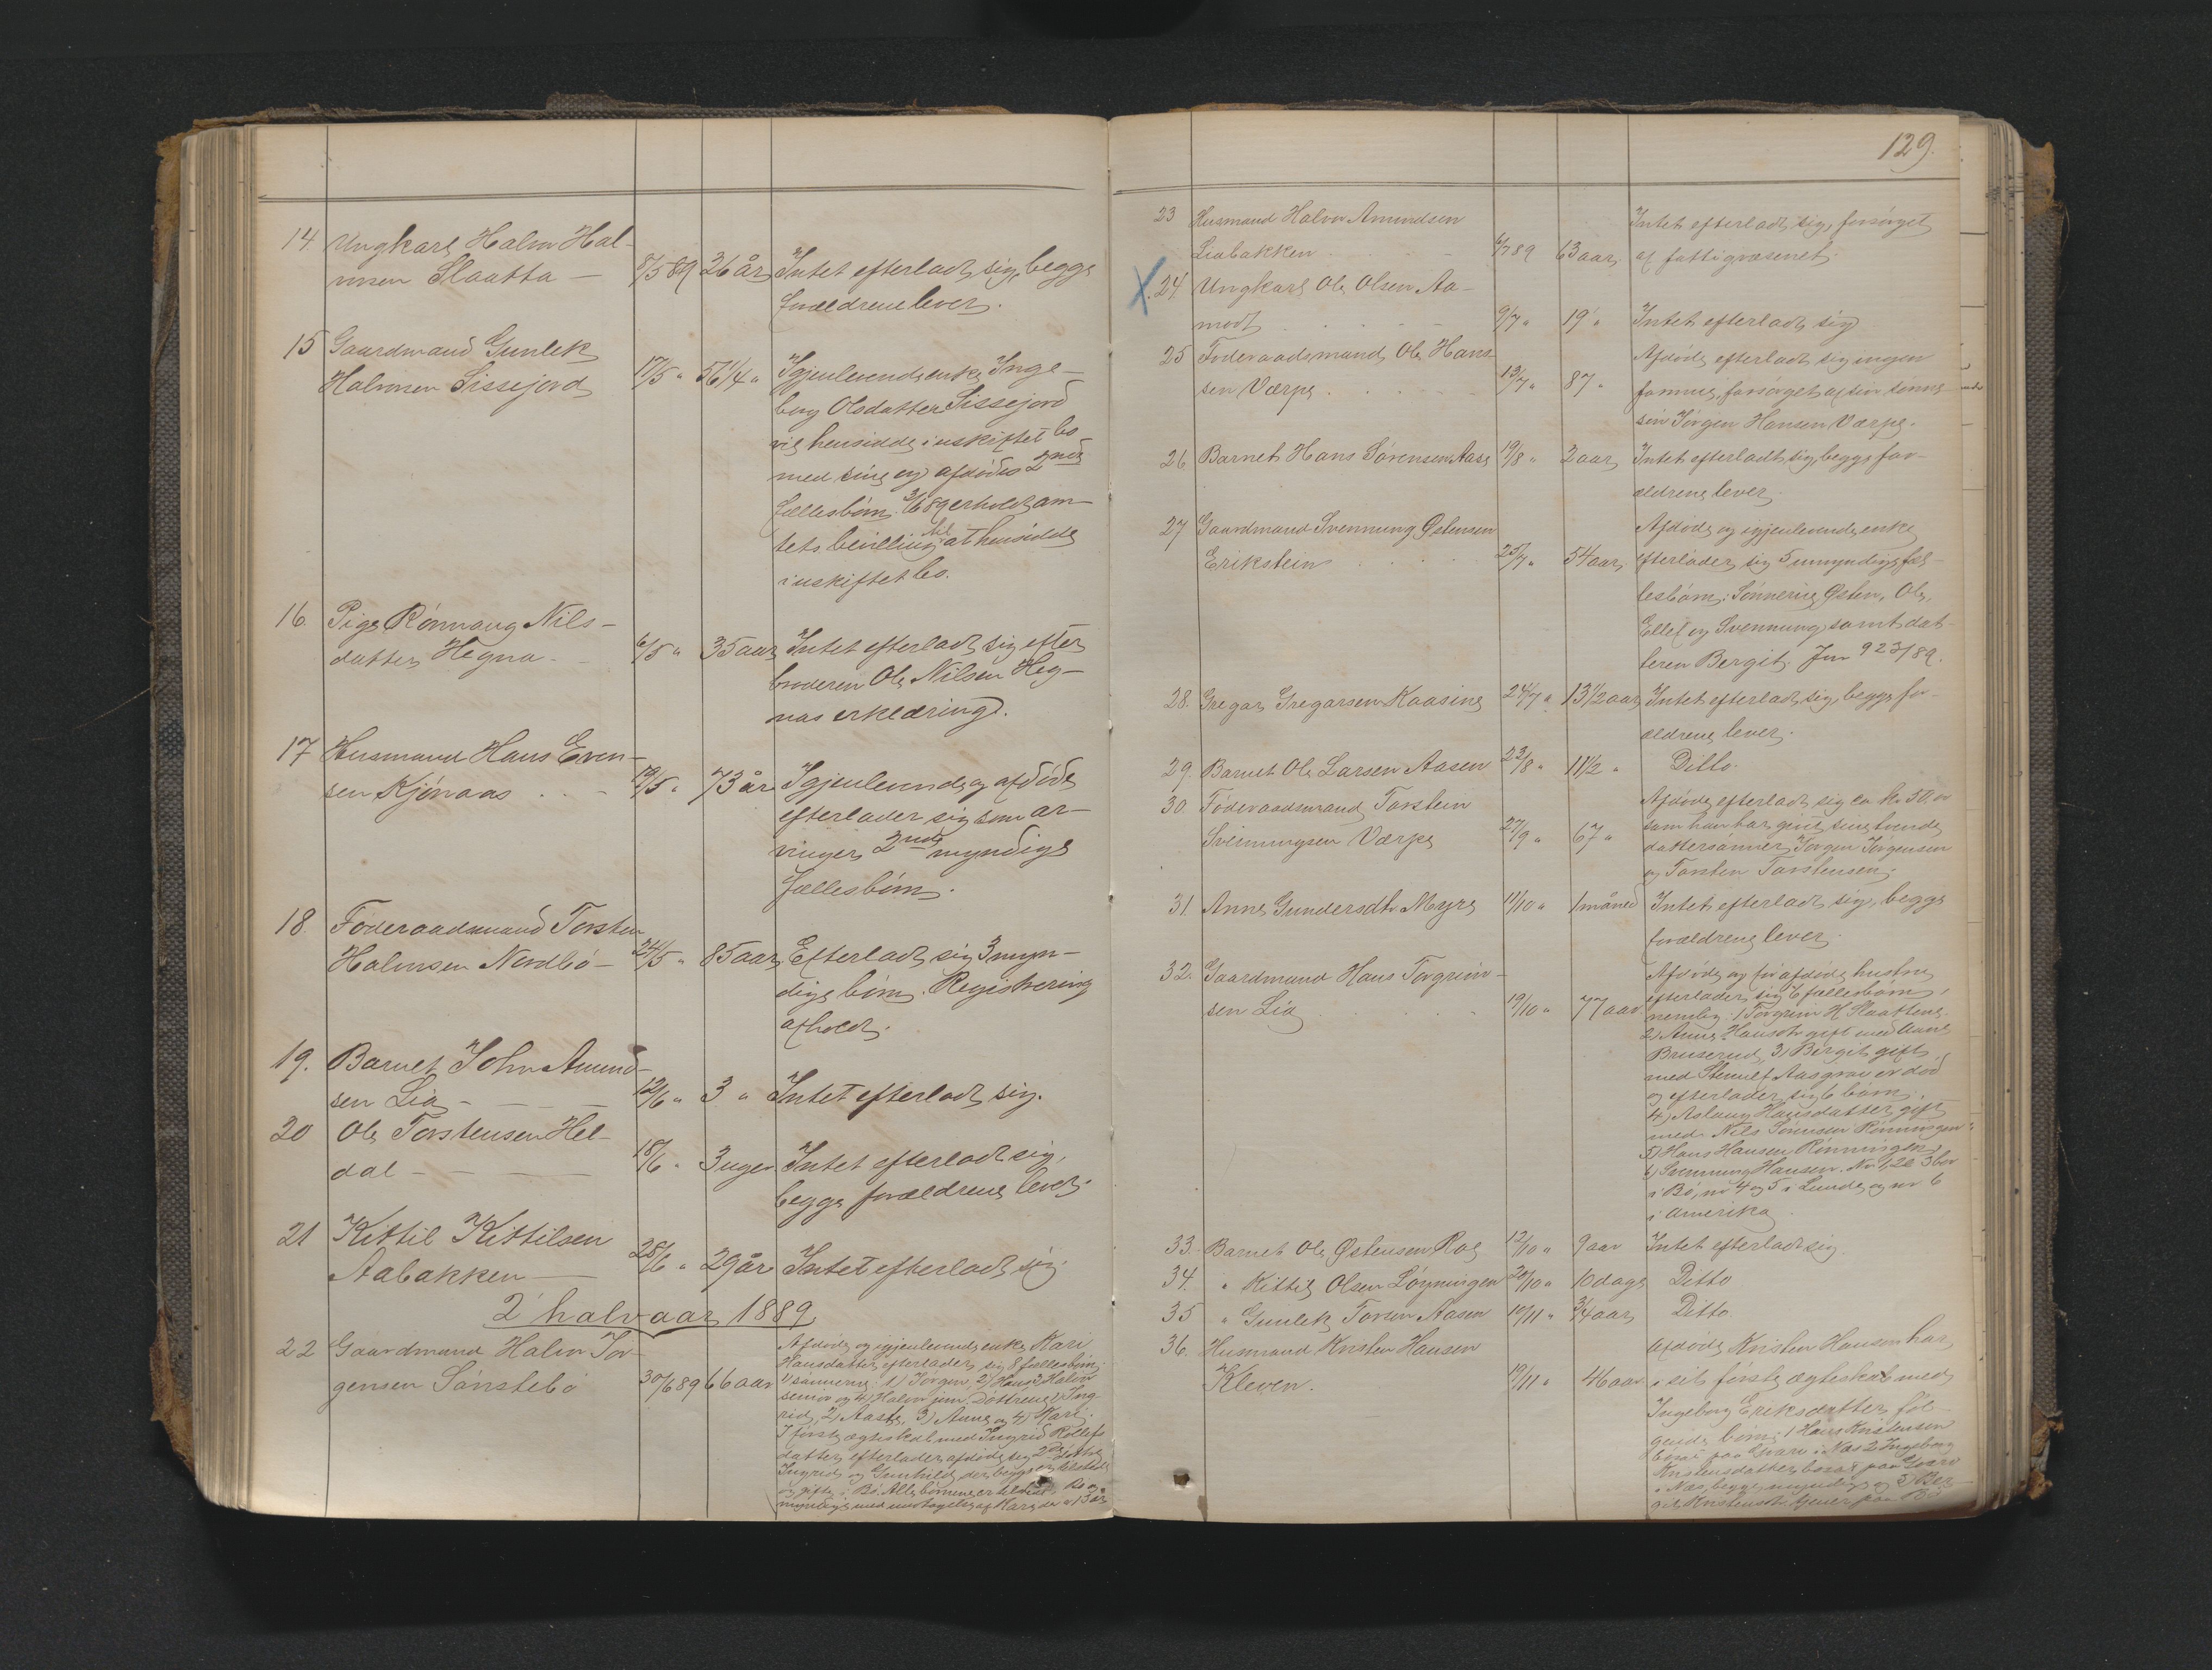 14 Ungkarl Halvor Hal-
vorsen Slaatta — 8/5 89 26 år Intet efterladt sig, begge
forældrene lever.
15 Gaardmand Gunlek
Halvorsen Sissejord 17/5 " 56 1/4 " Igjenlevende enke Inge-
borg Olsdatter Sissejord
vil hensidde i uskiftet bo
med sine og afdødes 2nde
fællesbørn. 3/6 89 erholdt am-
tets bevilling til at hensidde
i uskiftet bo.
16. Pige Rønnaug Nils-
datter Hegna 6/5 " 35 aar Intet efterladt sig efter
broderen Ole Nilsen Heg-
nas erklæring.
17 Husmand Hans Even-
sen Kjønaas 19/5 " 73 år Igjenlevende og afdøde
efterlader sig som ar-
vinger 2nde myndige
fællesbørn.
18 Føderaadsmand Torsten
Halvorsen Nordbø — 24/5 " 85 aar Efterladt sig 3 myn-
dige børn. Registrering
afholdt.
19. Barnet John Amund-
sen Lia — 12/6 " 3 " Intet efterladt sig.
20 Ole Torstensen Hel-
dal — 18/6 " 3 uger Intet efterladt sig,
begge forældrene lever.
21 Kittil Kittilsen
Aabakken — 25/6 " 29 år Intet efterladt sig.
2' halvaar 1889
22 Gaardmand Halvor Jør- Afdøde og igjenlevende enke Kari
Hansdatter efterlader sig 8 fællesbørn:
gensen Sønstebø 30/6 89 66 aar sønnerne: 1) Jørgen, 2) Hans 3) Halvor
senior og 4) Halvor jun. Døttrene 1) Ing-
rid, 2) Aaste, 3) Anne og 4) Kari.
I første ægteskab med Ingrid Rollefs
datter efterlader afdøde sig 2de døttre
Ingrid og Gunhild, der begge er
og gifte i Bø. Alle børnene er
myndige med undtagelse af Kari der er 13 år
129.
23 Husmand Halvor Amundsen Intet efterladt sig, forsørget
Liabakken 6/7 89 63 aar af fattigvæsenet.
X. 24 Ungkarl Ole Olsen Aa-
modt 9/7 " 19 " Intet efterladt sig
25 Føderaadsmand Ole Hans- Afdøde efterladt sig ingen
sen Værpe 13/7 " 87 " formue, forsørget af sin sønne-
søn Jørgen Hansen Værpe.
26 Barnet Hans Sørensen Aase 19/8 " 2 aar Intet efterladt sig, begge for-
ældrene lever.
27 Gaardmand Svennung Østensen Afdøde og igjenlevende enke
Erikstein 25/7 " 54 aar efterlader sig 5 umyndige fæl-
lesbørn: Sønnerne Østen, Ole,
Ellef og Svennung samt dat-
teren Bergit. Jnr 923/89.
28. Gregar Gregarsen Kaasine 24/7 " 13 1/2 aar Intet efterladt sig, begge for-
ældrene lever.
29. Barnet Ole Larsen Aasen 22/8 " 11 1/2 " Ditto.
30. Føderaadsmand Torstein Afdøde efterladt sig ca kr 50.00
Sveinungsen Værpe 27/9 " 67 " som han har givet sine tvende
dattersønner, Jørgen Jørgensen
og Torsten Torstensen.
31. Anne Gundersdtr Myre 11/10 " 1 måned Intet efterladt sig, begge
forældrene lever.
32. Gaardmand Hans Torgrim- Afdøde og før afdøde hustru
sen Lia 19/10 " 77 aar efterlader sig 6 fællesbørn,
nemlig: 1) Torgrim H. Slaattene
2) Anne Hansdtr gift med Aane
Bruserud, 3) Birgit gift
med Steinulf Aasgrav er død
og efterlader sig 6 børn,
4) Aslaug Hansdatter gift
med Nils Sørensen Rønningen
5) Hans Hansen Rønningen,
6) Svennung Hansen. Nr 1, 2 & 3 bor
i Bø, nr 4 og 5 i Lunde og nr 6
i Amerika.
33. Barnet Ole Østensen Roe 12/10 " 9 aar Intet efterladt sig.
34. " Kittil Olsen Løyningen 20/10 " 10 dage Ditto
35 " Gunlek Torsen Aasen 10/11 " 3/4 aar Ditto
36. Husmand Kristen Hansen Afdøde Kristen Hansen har
Kleven. 19/11 " 46 aar i sit første ægteskab med
Ingeborg Eriksdatter føl-
gende børn: 1 Hans Kristensen
bosat paa i Næs 2 Ingeborg
Kristensdatter bosat paa
i Næs, begge myndige og 3) Ber-
git Kristensdtr paa Bø